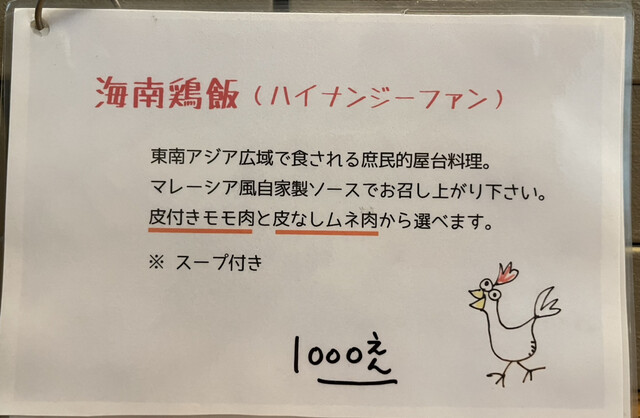 海南鶏飯（ハイナンジーファン）
東南アジア広域で食される庶民的屋台料理。
マレーシア風自家製ソースでお召し上がり下さい。
皮付きモモ肉と皮なしムネ肉から選べます。
※ スープ付き
1000えん